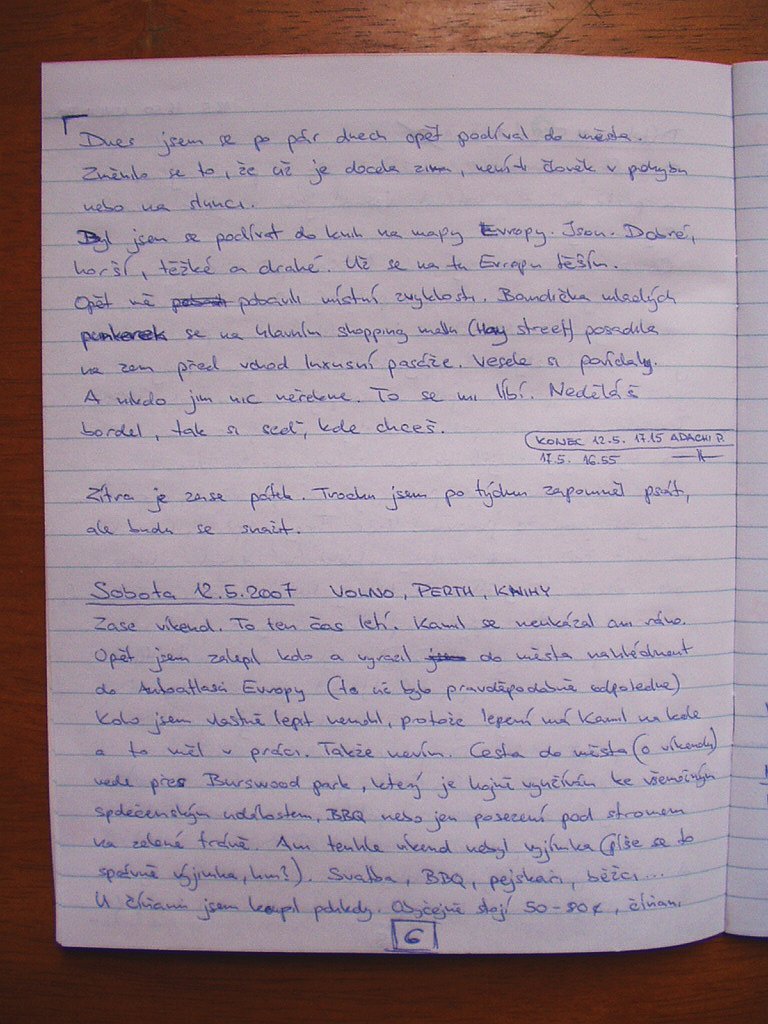 Dnes jsem se po pár dnech opět podíval do města.
Změnilo se to, že už je docela zima, není-li člověk v pohybu
nebo na slunci.
Byl jsem se podívat do knih na mapy Evropy. Jsou. Dobré,
horší, těžké a drahé. Už se na tu Evropu těším.
Opět mě pobavili místní zvyklosti. Bandička mladých
punkerek se na hlavním shopping mallu (Hay street) posadila
na zem před vchod luxusní pasáže. Vesele si povídaly.
A nikdo jim nic neřekne. To se mi líbí. Neděláš
bordel, tak si seď, kde chceš.
KONEC 12.5. 17.15 ADACHI P.
17.5. 16.55
Zítra je zase pátek. Trochu jsem po týdnu zapomněl psát,
ale budu se snažit.
Sobota 12.5.2007 VOLNO, PERTH, KNIHY
Zase víkend. To ten čas letí. Kamil se neukázal ani ráno.
Opět jsem zalepil kolo a vyrazil jsem do města nahlédnout
do Autoatlasů Evropy (to už bylo pravděpodobně odpoledne)
Kolo jsem vlastně lepit nemohl, protože lepení má Kamil na kole
a to měl v práci. Takže nevím. Cesta do města (o víkendu)
vede přes Burswood park, který je hojně využíván ke všemožným
společenským událostem, BBQ nebo jen posezení pod stromem
na zelené trávě. Ani tenhle víkend nebyl vyjímka (píše se to
správně výjimka, hm?). Svatba, BBQ, pejskaři, běžci...
U číňanů jsem koupil pohledy. Obyčejně stojí 50-80¢, číňani
6